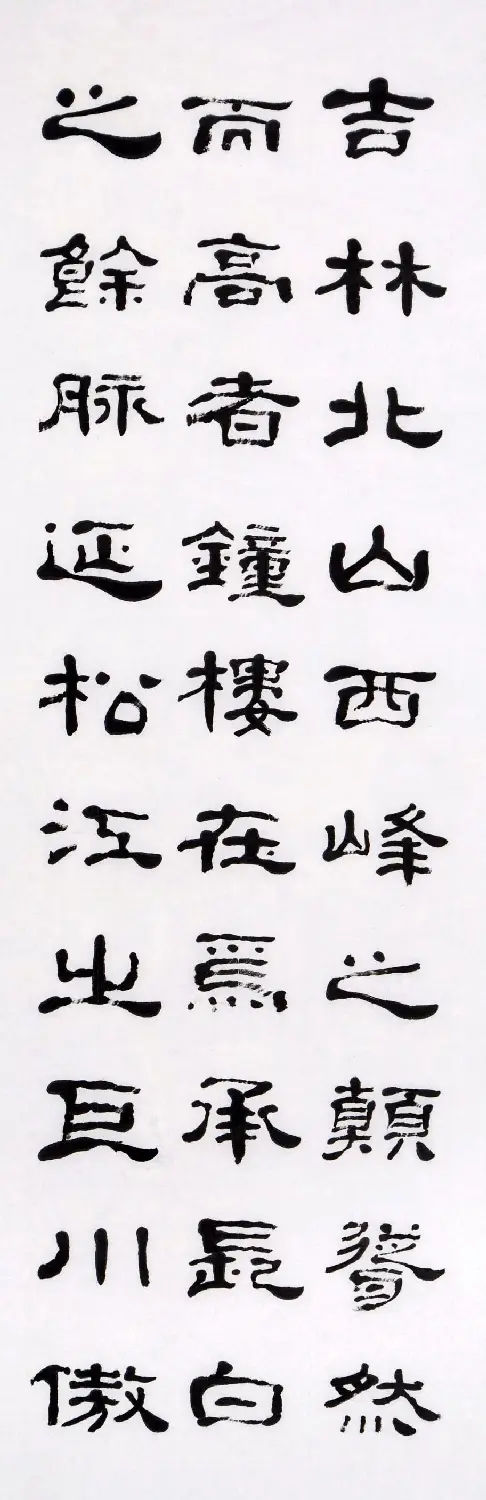 吉林北山西峰之顛聳然
而高者鐘樓在焉承長白
之餘脈延松江之巨川傲